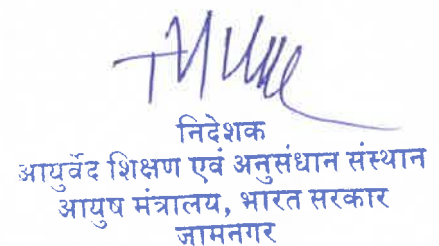 निदेशक
आयुर्वेद शिक्षण एवं अनुसंधान संस्थान
आयुष मंत्रालय, भारत सरकार
जामनगर